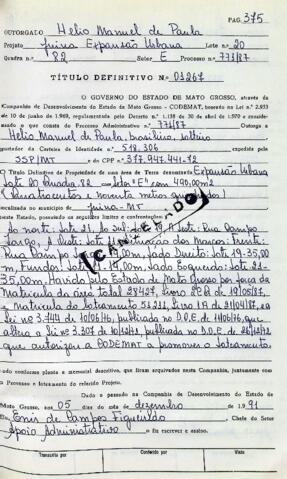 PAG. 375
OUTORGADO Helio Manuel de Paula
Projeto Juina Expansão Urbana Lote n.º 20
Quadra n.º 82 Setor E Processo n.º 773/87
TÍTULO DEFINITIVO N.º 03267
O GOVERNO DO ESTADO DE MATO GROSSO, através da
Companhia de Desenvolvimento do Estado de Mato Grosso - CODEMAT, baseado na Lei n.º 2.933
de 10 de junho de 1969, regulamentada pelo Decreto n.º 1.138 de 30 de abril de 1970 e considerando
o que consta do Processo Administrativo n.º 773/87 Outorga a
Helio Manuel de Paula, brasileiro, solteiro
portador da Carteira de Identidade n.º 518.306 expedida pela
SSP/MT e do CPF n.º 377.947.441-72
O Título Definitivo de Propriedade de uma área de Terra denominada Expansão Urbana
Lote 20 Quadra 82 com Setor "E" com 490,00m2
(Quatrocentos e noventa metros quadrados)
localizada no município de Juina-MT
neste Estado, possuindo os seguintes limites e confrontações:
Ao norte: Lote 21, Ao Sul: Lote 19, A Leste: Rua Campo
Largo, A Oeste: Lote Denominação dos Marcos: Frente:
Rua Campo Largo 14,00m, Lado Direito: Lote 19-35,00
m, Fundos: Lote 14,00m, Lado Esquerdo: Lote 21-
35,00m, Havido pelo Estado de Mato Grosso por força da
Matrícula da área total 28427, Livro 2 de 19/05/87,
e Matrícula do Loteamento
Lei nº 3.441 de 10/06/76, publicado no D.O.E. de 10/06/76, que
altera a Lei nº 3.307 de 10/12/72, publicada no D.O.E. de 26/12/72
que autorizou a CODEMAT a promover o Loteamento.
CANCELADO
tudo conforme planta e memorial descritivo, que ficam arquivados nesta Companhia, juntamente com
o Processo e loteamento do referido Projeto.
Dado e passado na Companhia de Desenvolvimento do Estado de
Mato Grosso, aos 05 dias do mês de dezembro de 1991
Eu, Enir de Campos Figueiredo Chefe do Setor
Apoio Administrativo o fiz escrever e assino.
Transcrito por Conferido por Visto